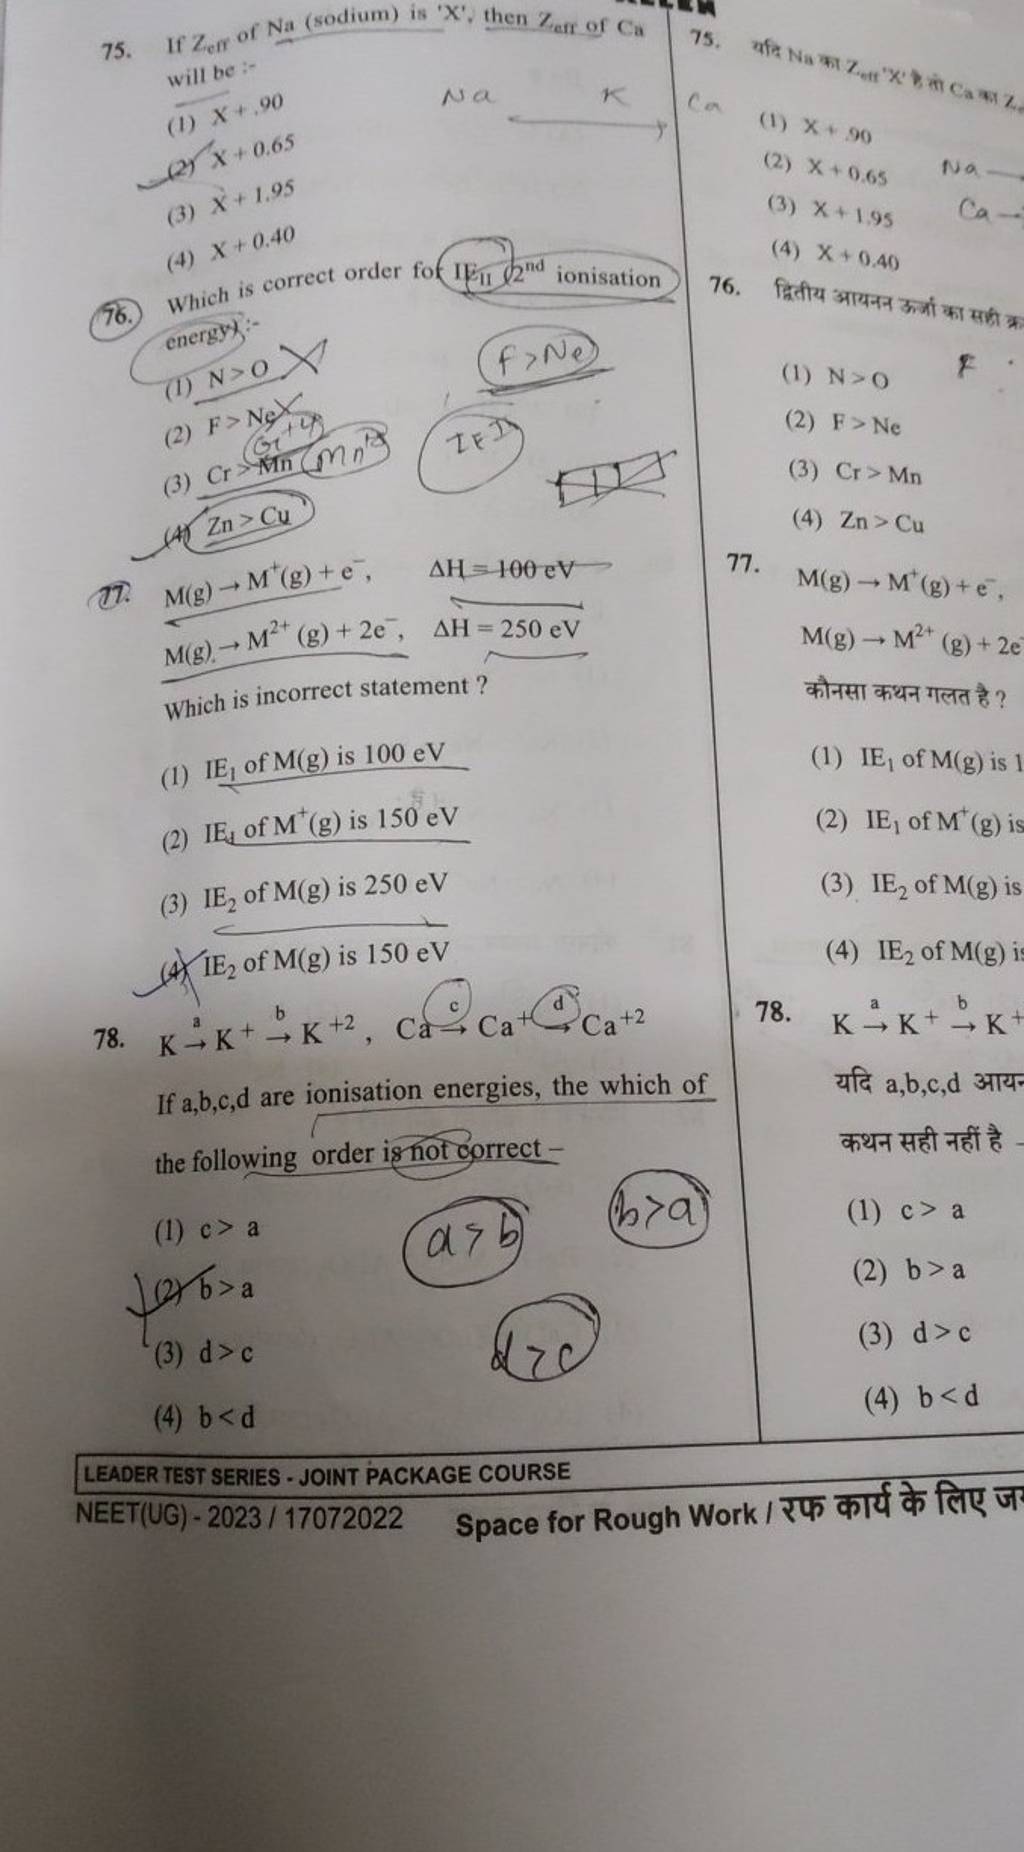 75. If Zeff of Na (sodium) is 'X', then Zeff of Ca
will be :-
(1) X + .90
(2) X + 0.65
(3) X + 1.95
(4) X + 0.40
Na K Ca
76. Which is correct order for IEII (2nd ionisation
energy) :-
(1) N > O
(2) F > Ne
(3) Cr > Mn
(4) Zn > Cu
F > Ne
IEII
77. M(g) → M⁺(g) + e⁻, ΔH = 100 eV
M(g) → M²⁺ (g) + 2e⁻, ΔH = 250 eV
Which is incorrect statement ?
(1) IE₁ of M(g) is 100 eV
(2) IE₁ of M⁺(g) is 150 eV
(3) IE₂ of M(g) is 250 eV
(4) IE₂ of M(g) is 150 eV
78. K →a K⁺ →b K⁺², Ca →c Ca⁺ →d Ca⁺²
If a,b,c,d are ionisation energies, the which of
the following order is not correct –
(1) c > a
(2) b > a
(3) d > c
(4) b < d
a > b
b > a
d > c
75. यदि Na का Zeff 'X' है तो Ca का
(1) X + .90
(2) X + 0.65
(3) X + 1.95
(4) X + 0.40
Na
Ca
76. द्वितीय आयनन ऊर्जा का सही
(1) N > O
(2) F > Ne
(3) Cr > Mn
(4) Zn > Cu
F
77. M(g) → M⁺(g) + e⁻,
M(g) → M²⁺ (g) + 2e⁻
कौनसा कथन गलत है ?
(1) IE₁ of M(g) is 1
(2) IE₁ of M⁺(g) is
(3) IE₂ of M(g) is
(4) IE₂ of M(g) is
78. K →a K⁺ →b K⁺
यदि a,b,c,d आयन
कथन सही नहीं है –
(1) c > a
(2) b > a
(3) d > c
(4) b < d
LEADER TEST SERIES - JOINT PACKAGE COURSE
NEET(UG) - 2023 / 17072022 Space for Rough Work / रफ कार्य के लिए